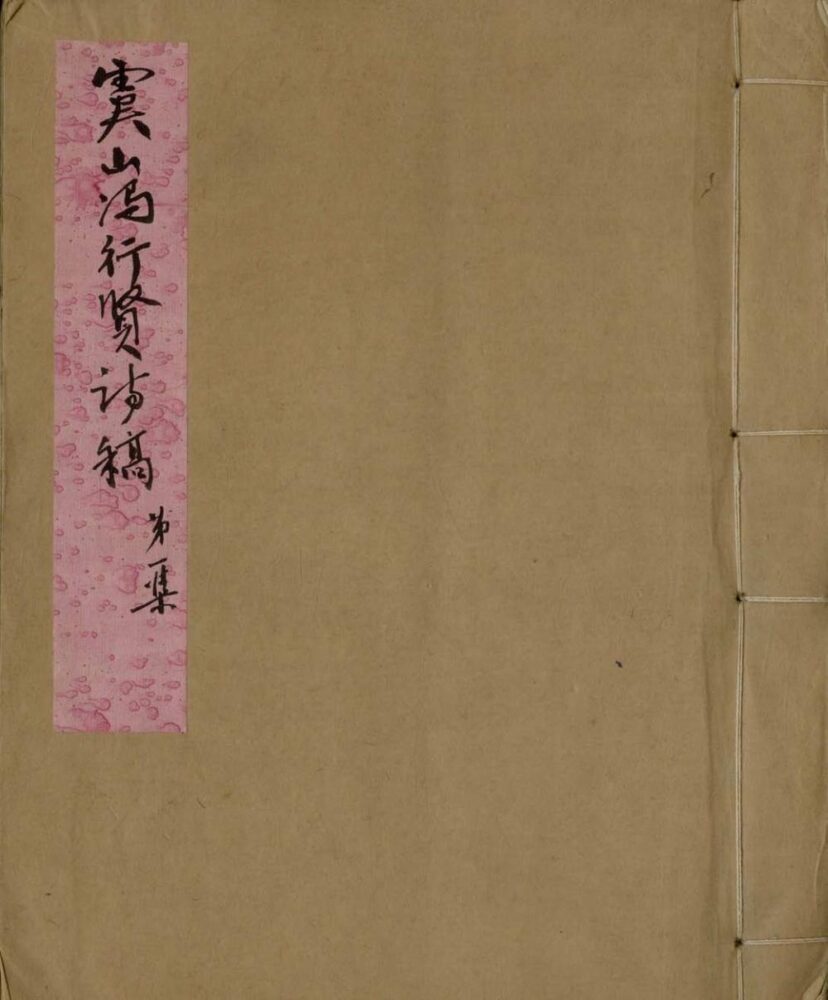 虞山馮行賢詩稿
第一集